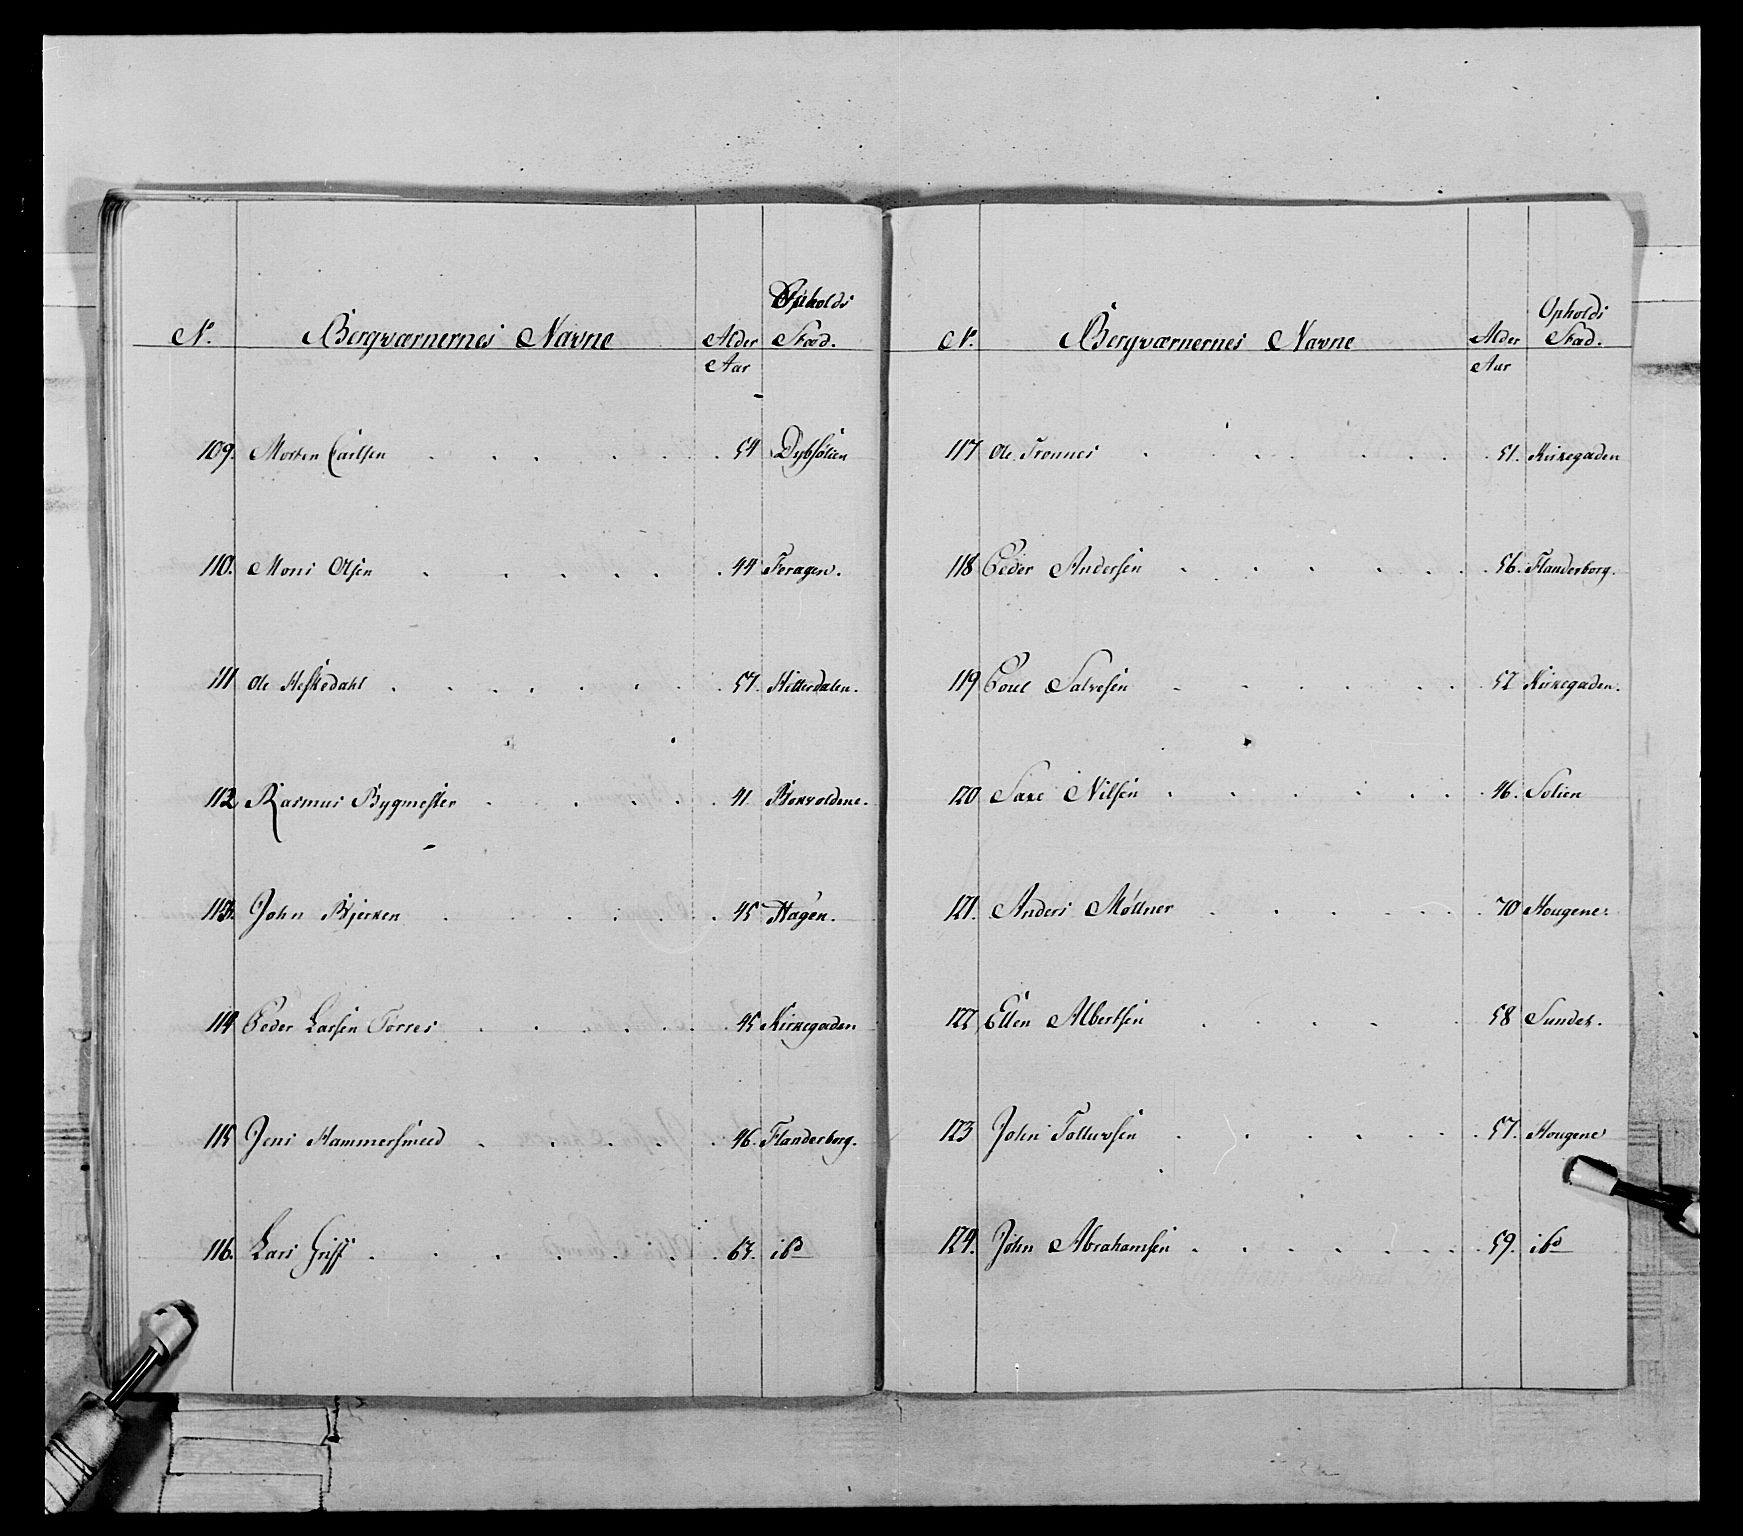 Opholds
N<sup>o</sup>. Bergværnernes Navne Alder Stæd.
Aar
109. Morten Carlsen 54 Dybsølien
110. Mons Olsen 44 Feragen.
111 Ole Heskedahl 57. Hitterdalen.
112 Rasmus Bygmester 41 Borvoldene.
113. John Bjerken 45 Hagen.
114 Peder Larsen Torres 45 Kirkegaden
115 Jens Hammersmed 46. Flanderborg.
116. Lars Griff 63. ibd
Opholds
N<sup>o</sup>. Bergværnernes Navne Alder Stæd.
Aar
117 Ole Trønnes 51. Kirkegaden
118 Peder Andersen 56. Flanderborg.
119 Poul Salvesen 52 Kirkegaden.
120 Saxe Nilsen 46. Solien
121. Anders Møllner 70 Hougene.
122 Ellen Albertsen 58 Sundet.
123 John Tollevsen 57. Hougene
124. John Abrahamsen 59. ibd